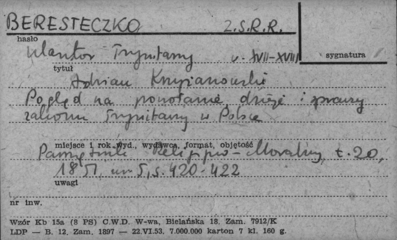 BERESTECZKO Z.S.R.R.
hasło
klasztor Trynitarzy w. XVII-XVIII sygnatura
tytuł
Adrian Krzyżanowski
Pogląd na powołanie, dzieje i sprawy
zakonu Trynitarzy w Polsce
miejsce i rok wyd., wydawca, format, objętość
Pamiętnik Religijno-Moralny, t. 20,
1851, nr 5, s. 420-422
uwagi
nr inw.
Wzór Kb 15a (8 PS) C.W.D. W-wa, Bielańska 18, Zam. 7912/K
LDP — B. 12. Zam. 1897 — 22.VI.53. 7.000.000 karton 7 kl. 160 g.